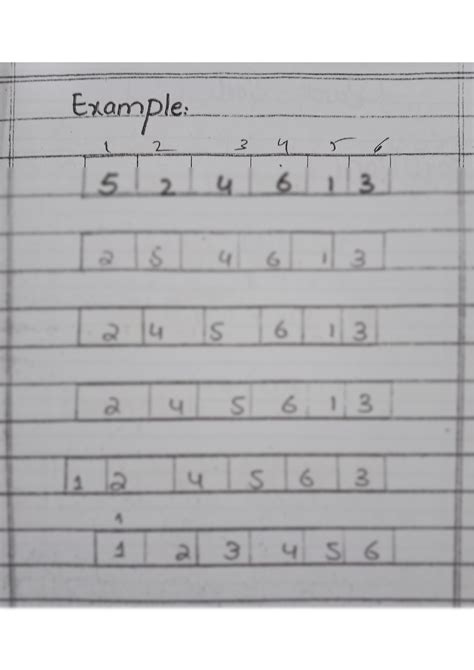 Example:
1 2 3 4 5 6
5 2 4 6 1 3
2 5 4 6 1 3
2 4 5 6 1 3
2 4 5 6 1 3
1 2 4 5 6 3
1
1 2 3 4 5 6